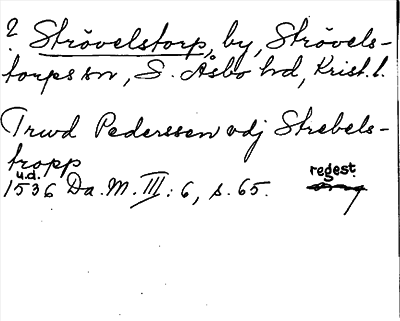 ? Strövelstorp, by, Strövels-
torps sn, S. Åsbo hd, Krist. l.
Trwd Pederssen vdj Strebels-
tropp
u.d.
1536 Da. M. III: 6, s. 65. regest